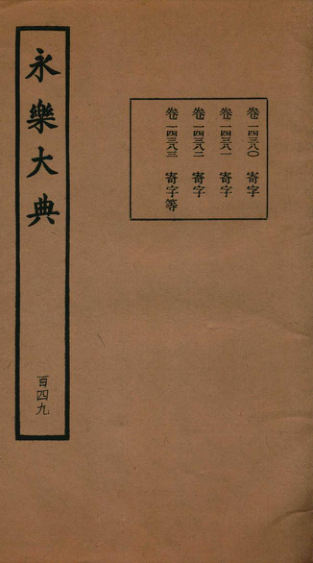 永樂大典
百四九
卷一四三八〇　寄字
卷一四三八一　寄字
卷一四三八二　寄字
卷一四三八三　寄字等